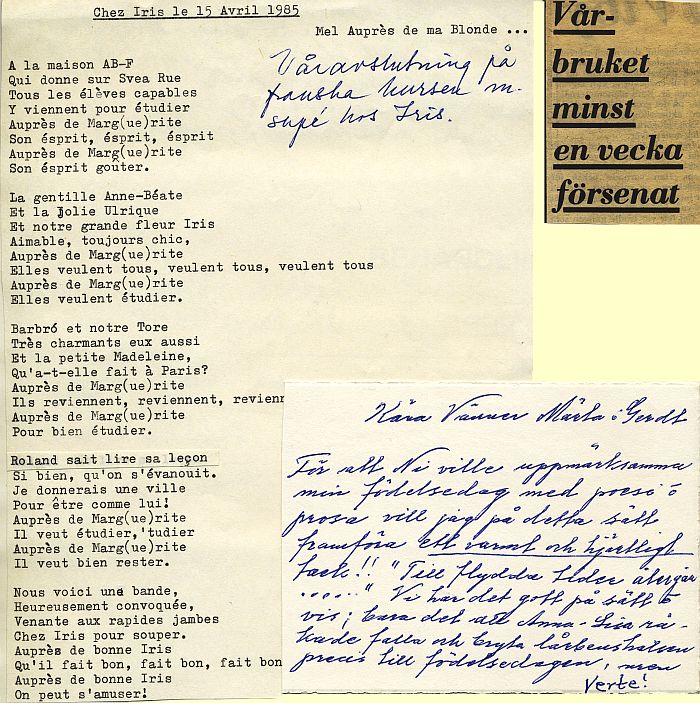 Chez Iris le 15 Avril 1985
Mel Auprès de ma Blonde ...
Våravslutning på
franska kursen m.
supé hos Iris.
A la maison AB-F
Qui donne sur Svea Rue
Tous les élèves capables
Y viennent pour étudier
Auprès de Marg(ue)rite
Son ésprit, ésprit, ésprit
Auprès de Marg(ue)rite
Son ésprit goûter.
La gentille Anne-Béate
Et la Jolie Ulrique
Et notre grande fleur Iris
Aimable, toujours chic,
Auprès de Marg(ue)rite
Elles veulent tous, veulent tous, veulent tous
Auprès de Marg(ue)rite
Elles veulent étudier.
Barbró et notre Tore
Très charmants eux aussi
Et la petite Madeleine,
Qu'a-t-elle fait à Paris?
Auprès de Marg(ue)rite
Ils reviennent, reviennent, revienn
Auprès de Marg(ue)rite
Pour bien étudier.
Roland sait lire sa leçon
Si bien, qu'on s'évanouit.
Je donnerais une ville
Pour être comme lui!
Auprès de Marg(ue)rite
Il veut étudier,'tudier
Auprès de Marg(ue)rite
Il veut bien rester.
Nous voici une bande,
Heureusement convoquée,
Venante aux rapides jambes
Chez Iris pour souper.
Auprès de bonne Iris
Qu'il fait bon, fait bon, fait bon
Auprès de bonne Iris
On peut s'amuser!
Vår-
bruket
minst
en vecka
försenat
Kära Vänner Märta o Gerdt
För att Ni ville uppmärksamma
min födelsedag med poesi o
prosa vill jag på detta sätt
framföra ett varmt och hjärtligt
tack!! "Till flydda tider återgår
......" Vi har det gott på sätt o
vis; bara det att Anna-Lisa rå-
kade falla och bryta lårbenshalsen
precis till födelsedagen, men
Verte!